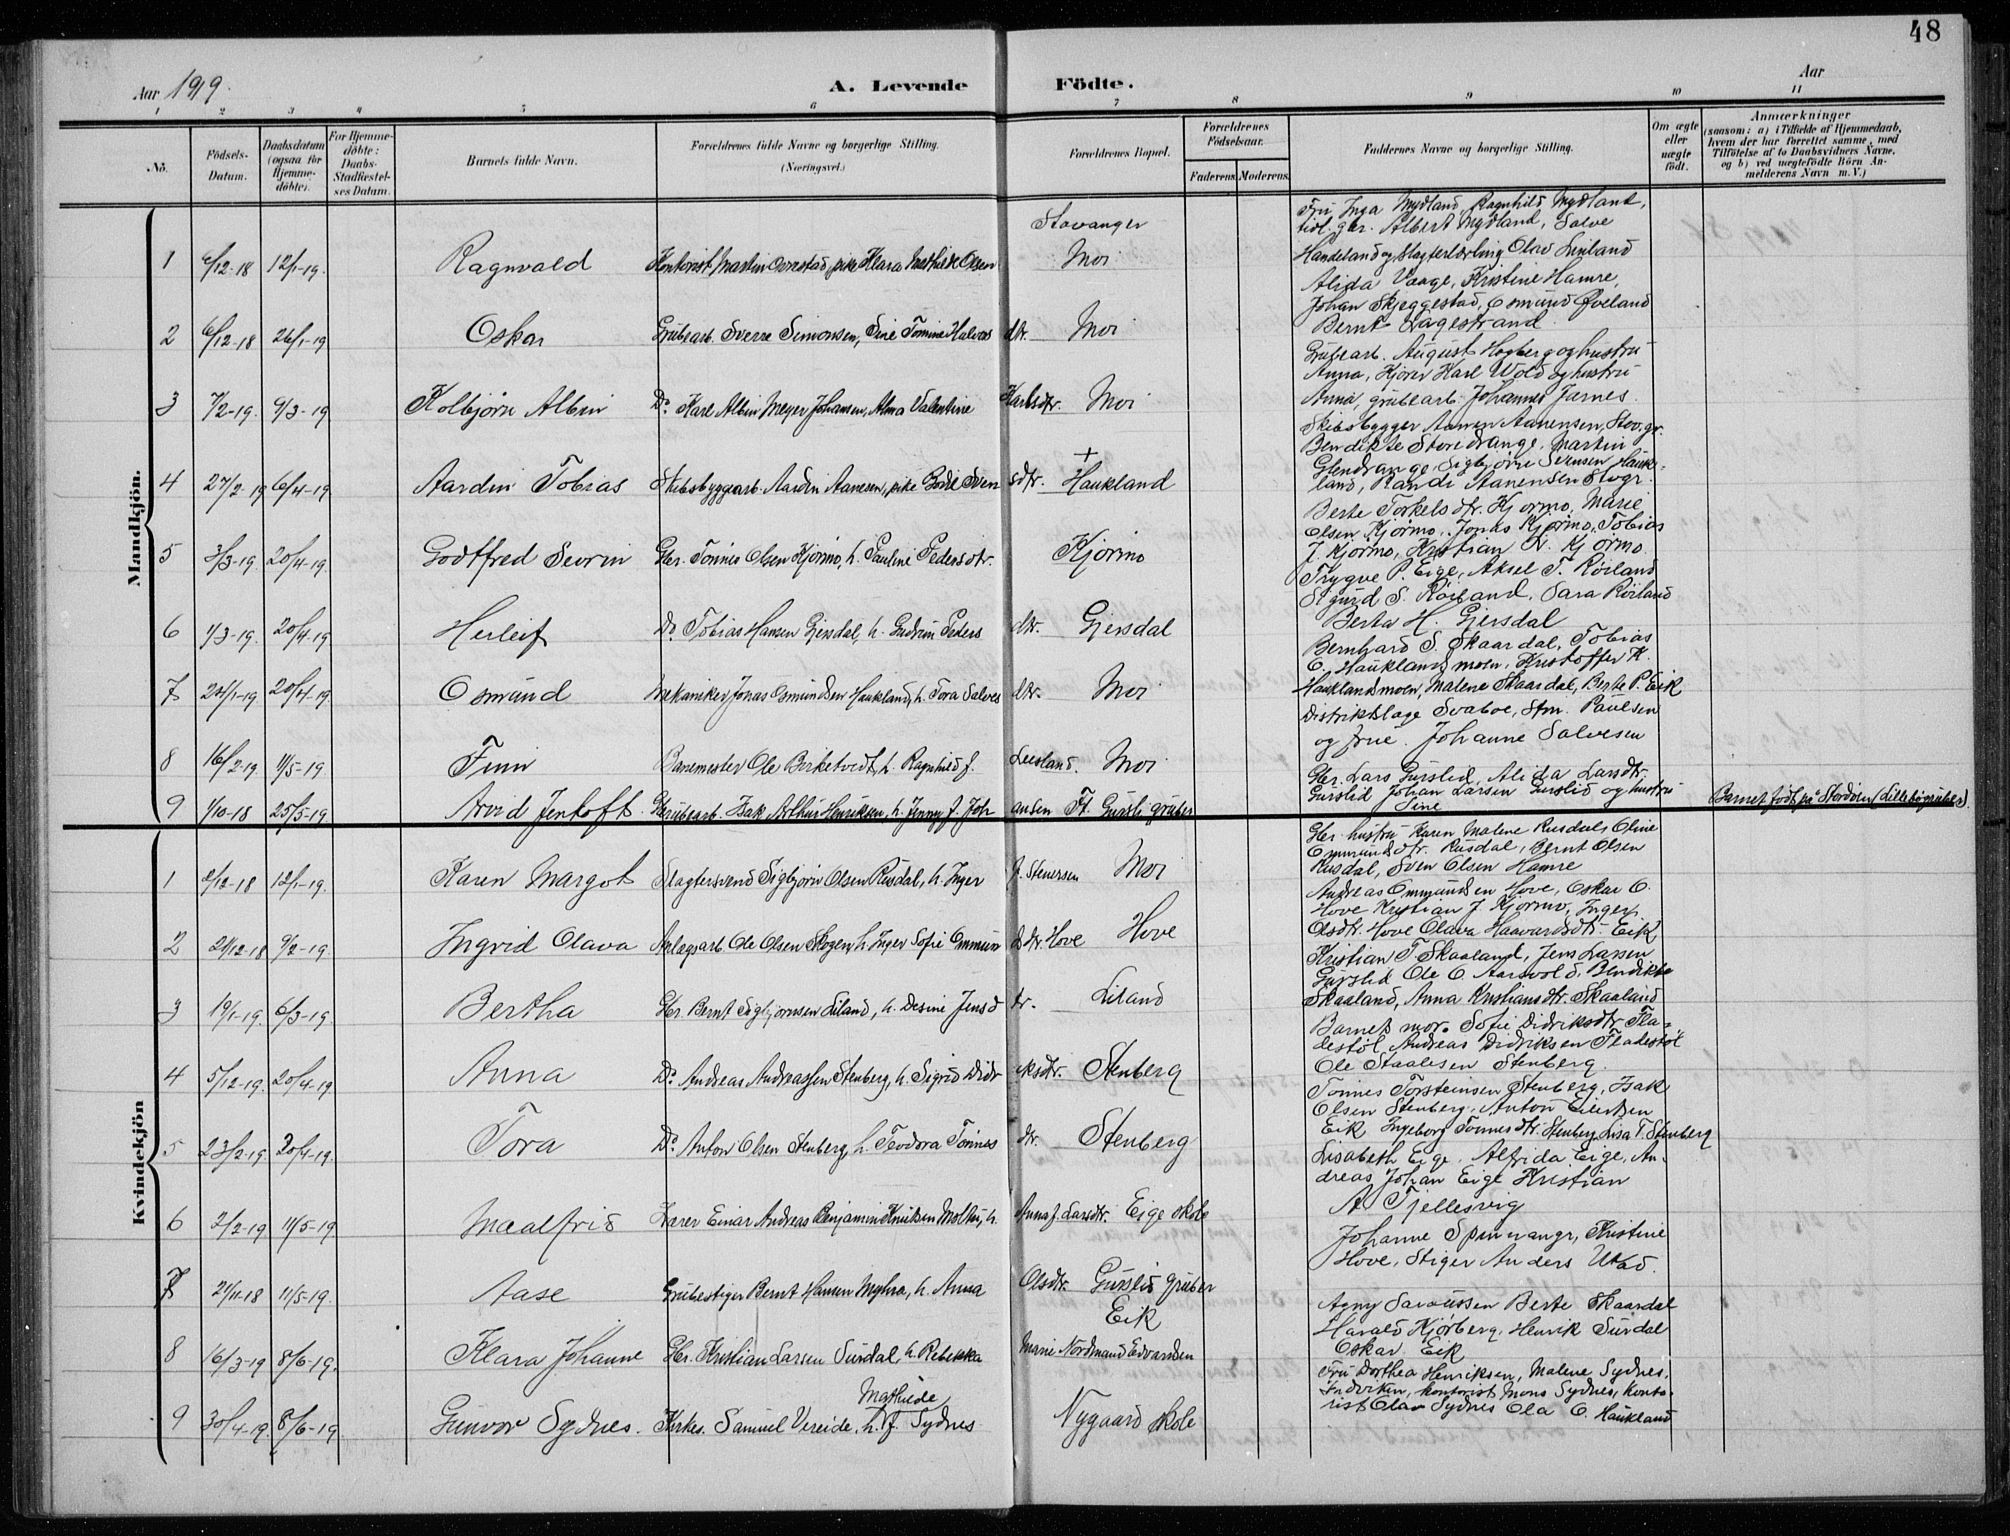 48
Aar 1919.
A. Levende Födte.
Aar
1 2 3 4 5 6 7 8 9 10 11
No.
Födsels-Datum.
Daabsdatum (ogsaa for Hjemme-döbte).
For Hjemme-döbte: Daabs-Stadfæstel-ses Datum.
Barnets fulde Navn.
Forældrenes fulde Navne og borgerlige Stilling.
(Næringsvei.)
Forældrenes Bopæl.
Forældrenes Födselsaar.
Faderens. Moderens.
Faddernes Navne og borgerlige Stilling.
Om ægte eller uægte födt.
Anmærkninger
(saasom: a) i Tilfælde af Hjemmedaab, hvem der har forrettet samme, med Tilföielse af to Daabsvidners Navne, og b) ved uægtefödte Börn An-melderens Navn m. V.)
Mandkjön.
1 6/12-18 12/1-19. Ragnvald Kontorist Martin Ovrestad, pike Klara Mathilde Olsen Stavanger Moi
Fru Inga Mydland, Ragnhild Mydland,
tidl. gbr. Albert Mydland, Salve
Handeland og Slagterlærling Olav Leiland
2 6/12-18 26/1-19 Oskar Grubearb. Sverre Simonsen, Sine Tomine Halvors dtr. Moi
Alida Vaage, Kristine Hamre,
Johan Skjeggestad, Osmund Øveland
Bernt Lagestrand
3 7/2-19. 9/3-19 Kolbjörn Albin Do. Karl Albin Meyer Johansen, Alma Valentine Karlsdtr. Moi
Grubearb. August Hogberg og hustru
Anna, Kjörer Karl Wold og hustru
Anna, grubearb. Johannes Jarnes.
4 27/2-19 6/4-19 Aardin Tobias Skibsbyggearb. Aardin Aanensen, pike Bodil Sven sdtr. + Haukland
Skibsbygger Aanen Aanensen, Stov. gr.
Bendikte Storedrange, Martin
Glendrange, Sigbjörn Svensen Hauk-
land, Randi Aanensen Stogr.
5 3/3-19. 20/4-19. Godtfred Severin Gbr. Tönnes Olsen Kjörmo, h. Pauline Pedersdtr. Kjörmo
Berte Torkelsdtr. Kjörmo, Marie
Olsen Kjörmo, Jonas Kjörmo, Tobias
J. Kjörmo, Kristian N. Kjörmo.
6 1/3-19. 20/4-19. Herleif Do. Tobias Hansen Gjersdal, h. Gudrun Peders dtr. Gjersdal
Trygve P. Eige, Aksel T. Röiland
Sigurd S. Röiland, Sara Röiland
Berta H. Gjersdal
7 24/1-19 20/4-19. Osmund Mekaniker Jonas Osmundsen Haukland, h. Tora Salves dtr. Moi
Bernhard S. Skaardal, Tobias
O. Hauklandsmoen, Kristoffer K.
Hauklandsmoen, Malene Skaardal, Berte P. Eik
8 16/2-19 11/5-19 Finn Banemester Ole Birketvedt, h. Ragnhild f. Leesland. Moi
Distriktslæge Svaboe, Stm. Paulsen
og frue. Johanne Salvesen
9 1/10-18 25/5-19 Arvid Jentoft Grubearb. Isak Arthur Henriksen, h. Jenny f. Joh ansen Ft. Gursli gruber
Gbr. Lars Gurslid, Alida Larsdtr.
Gurslid Johan Larsen Gurslid og hustru
Sine
Barnet födt på Stordöen (Lillebögruber).
Kvindekjön
1 2/12-18 12/1-19. Karen Margot Slagtersvend Sigbjörn Olsen Rusdal, h. Inger f. Steversen Moi
Gbr. hustru Karen Malene Rusdal, Oline
Ommundsdtr. Rusdal, Bernt Olsen
Rusdal, Sven Olsen Hamre
2 21/12-18 9/2-19. Ingrid Olava Anlægsarb. Ole Olsen Skogen, h. Inger Sofie Ommun dsdtr. Hove Hove
Andreas Ommundsen Hove, Oskar O.
Hove Kristian J. Kjörmo, Inger
Olsdtr. Hove Olava Haavardsdtr. Eik
3 19/1-19. 6/3-19. Bertha Gbr. Bernt Sigbjörnsen Liland, h. Desine Jensd tr. Liland
Kristian T. Skaaland, Jens Larsen
Gurslid Ole O. Aamvold, Bendikte
Skaaland, Anna Kristiansdtr. Skaaland
4 5/12-19. 20/4-19. Anna Do. Andreas Andreassen Stenberg, h. Sigrid Didr iksdtr. Stenberg
Barnets mor. Sofie Didriksdtr. Fla-
destöl, Andreas Didriksen Fladestöl
Ole Staalesen Stenberg.
5 23/2-19 20/4-19. Tora Do. Anton Olsen Stenberg, h. Teodora Tönnes dtr. Stenberg
Tönnes Torsteinsen Stenberg, Isak
Olsen Stenberg, Anton Eilertsen
Eik Ingeborg Tönnesdtr. Stenberg Lisa T. Stenberg
6 2/2-19 11/5-19. Maalfrid Lærer Einar Andreas Benjamin Knudsen Molthu, h. Anna f. Larsdtr. Eige skole
Lisabeth Eige, Alfrida Eige, An-
dreas Johan Eige Kristian
A. Tjellesvig
7 21/11-18 11/5-19. Aase Grubestiger Bernt Hansen Myhra, h. Anna Olsdtr. Gurslid gruber
Johanne Spinnangr, Kristine
Hove, Stiger Anders Utad.
8 16/3-19 8/6-19. Klara Johanne Gbr. Kristian Larsen Surdal, h. Rebekka Marie Nordmand Edvardsen Eik
Agny Samuelsen Berte Skaardal
Harald Kjörberg, Henrik Surdal
Oskar Eik
9 30/4-19. 8/6-19 Gunvor Sydnes. Kirkes. Samuel Vereide, h. Mathilde f. Sydnes Nygaard skole
Fru Dorthea Henriksen, Malene Sydnes,
Indviken, kontorist Mons Sydnes, konto-
rist Olav Sydnes Ola O. Haukland